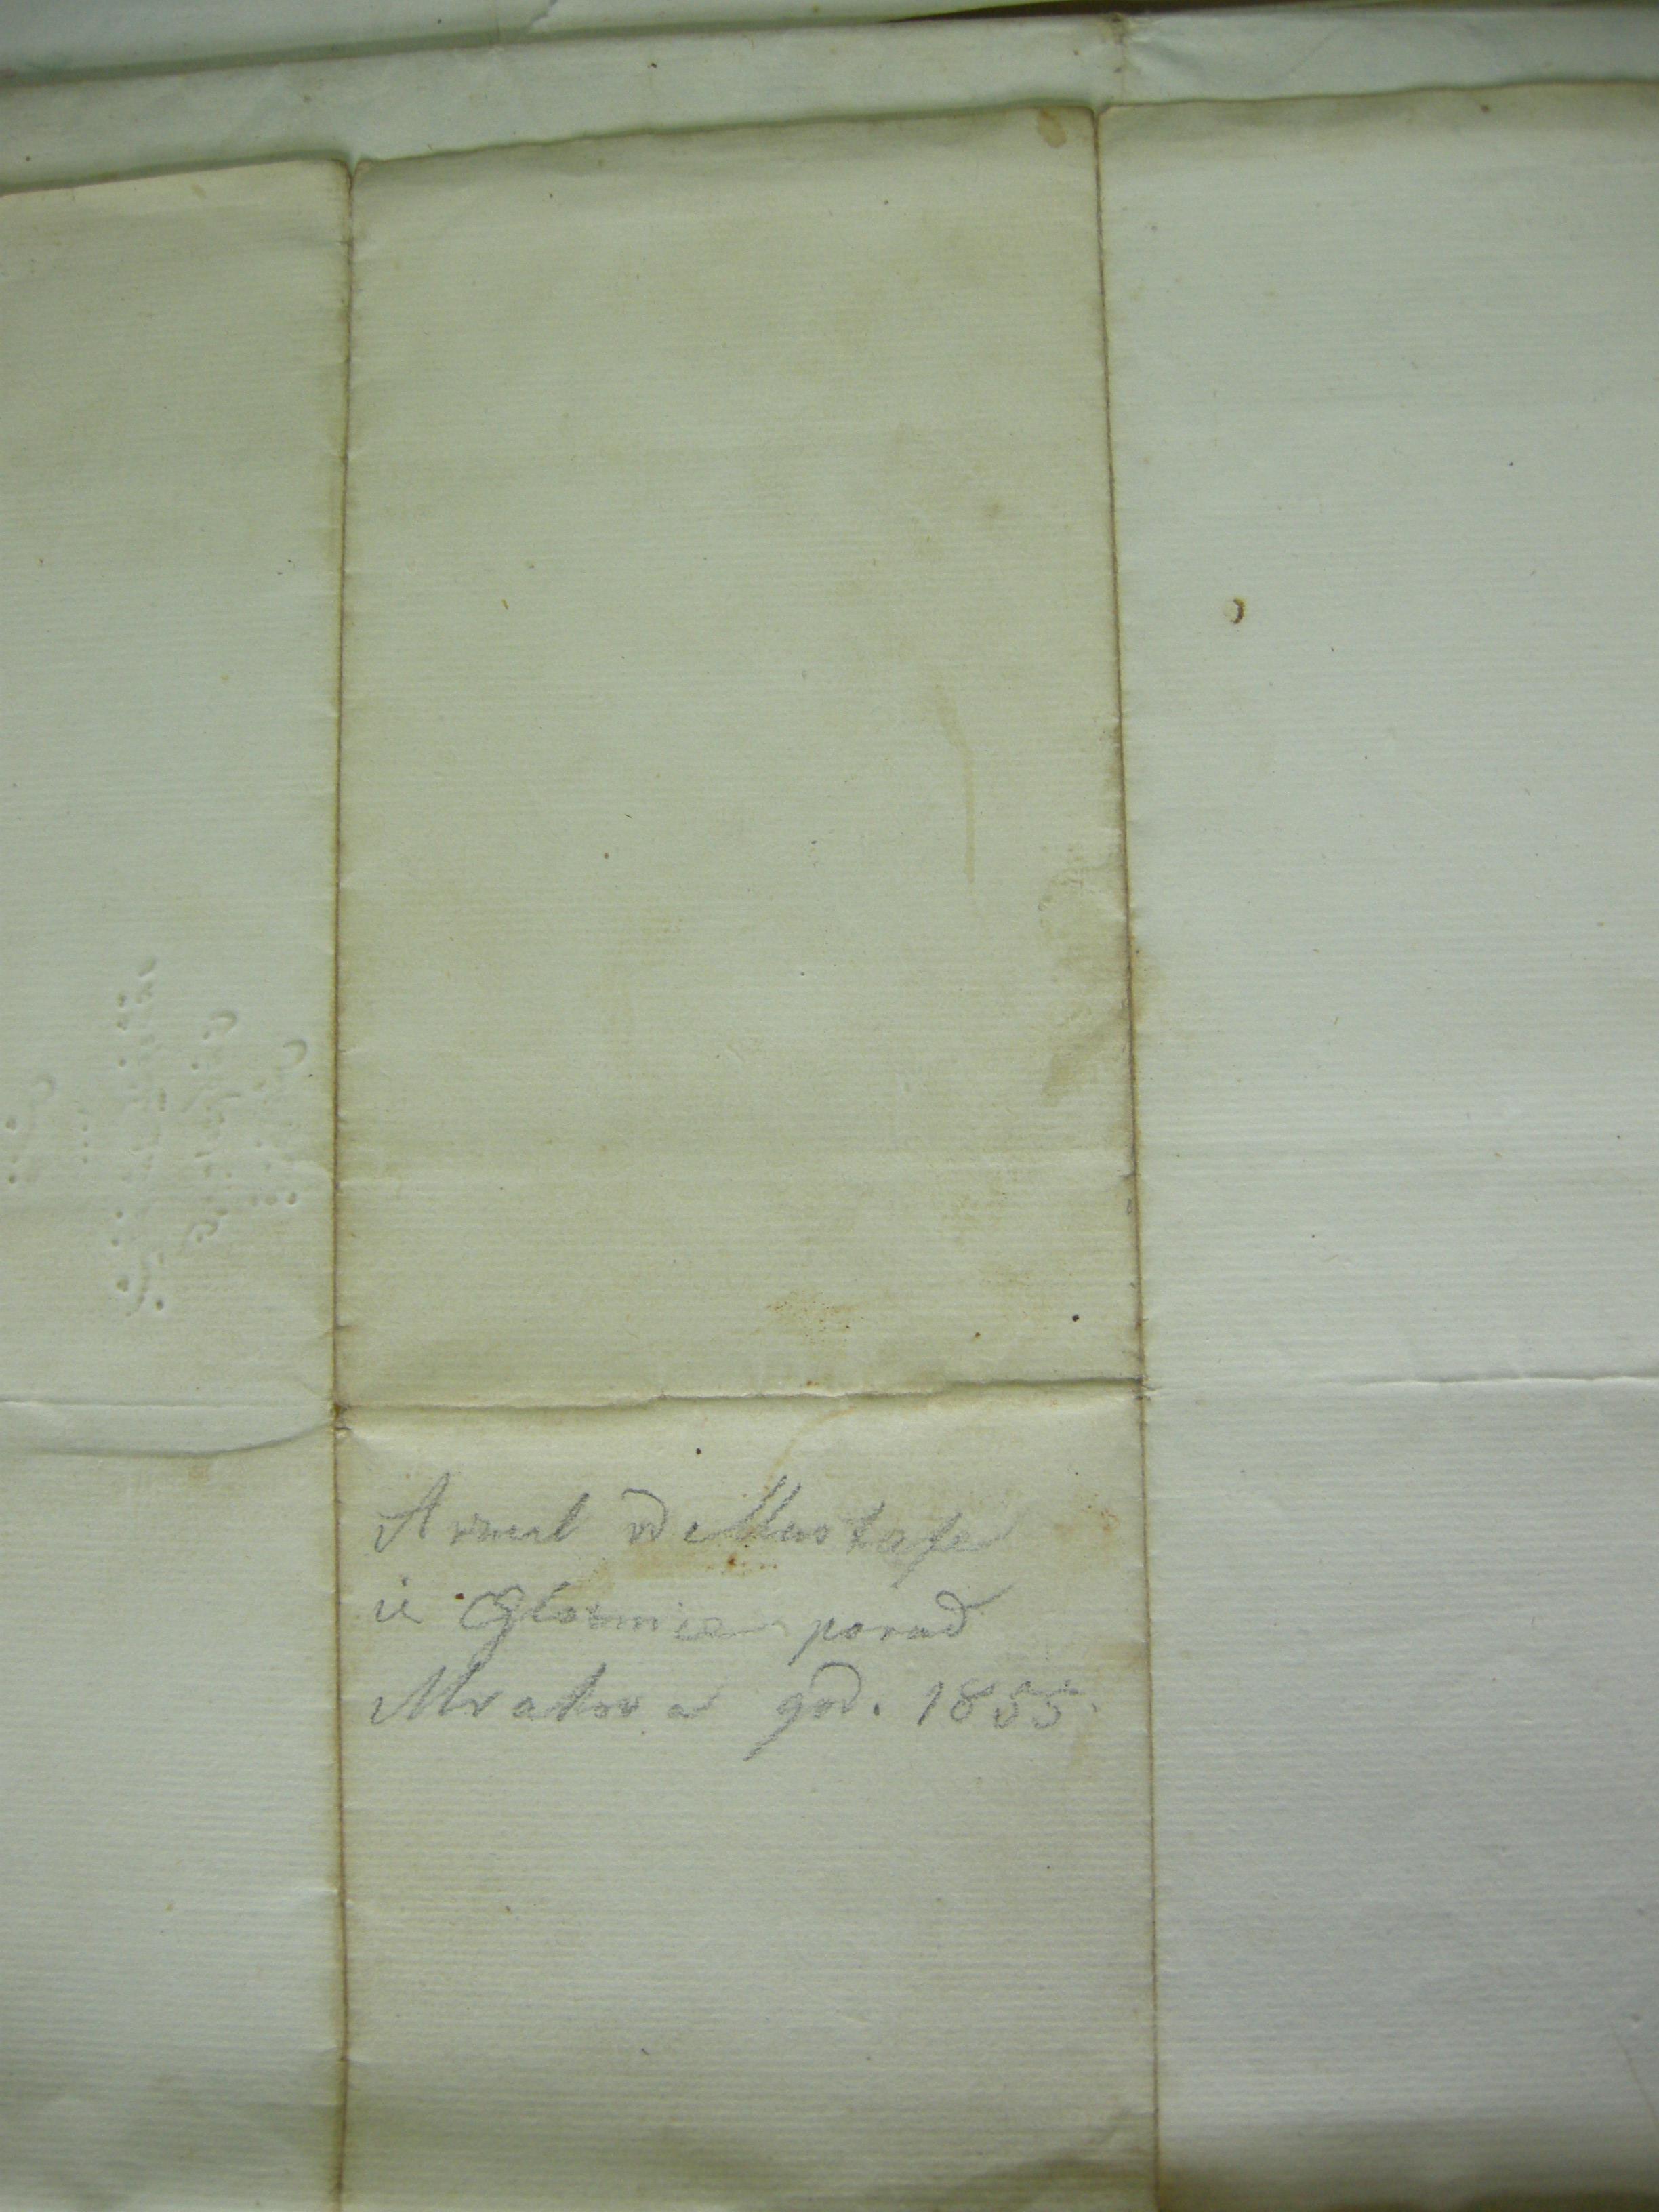 Arzual od Mustafe
iz Glavnice porad
Mratova god. 1855.